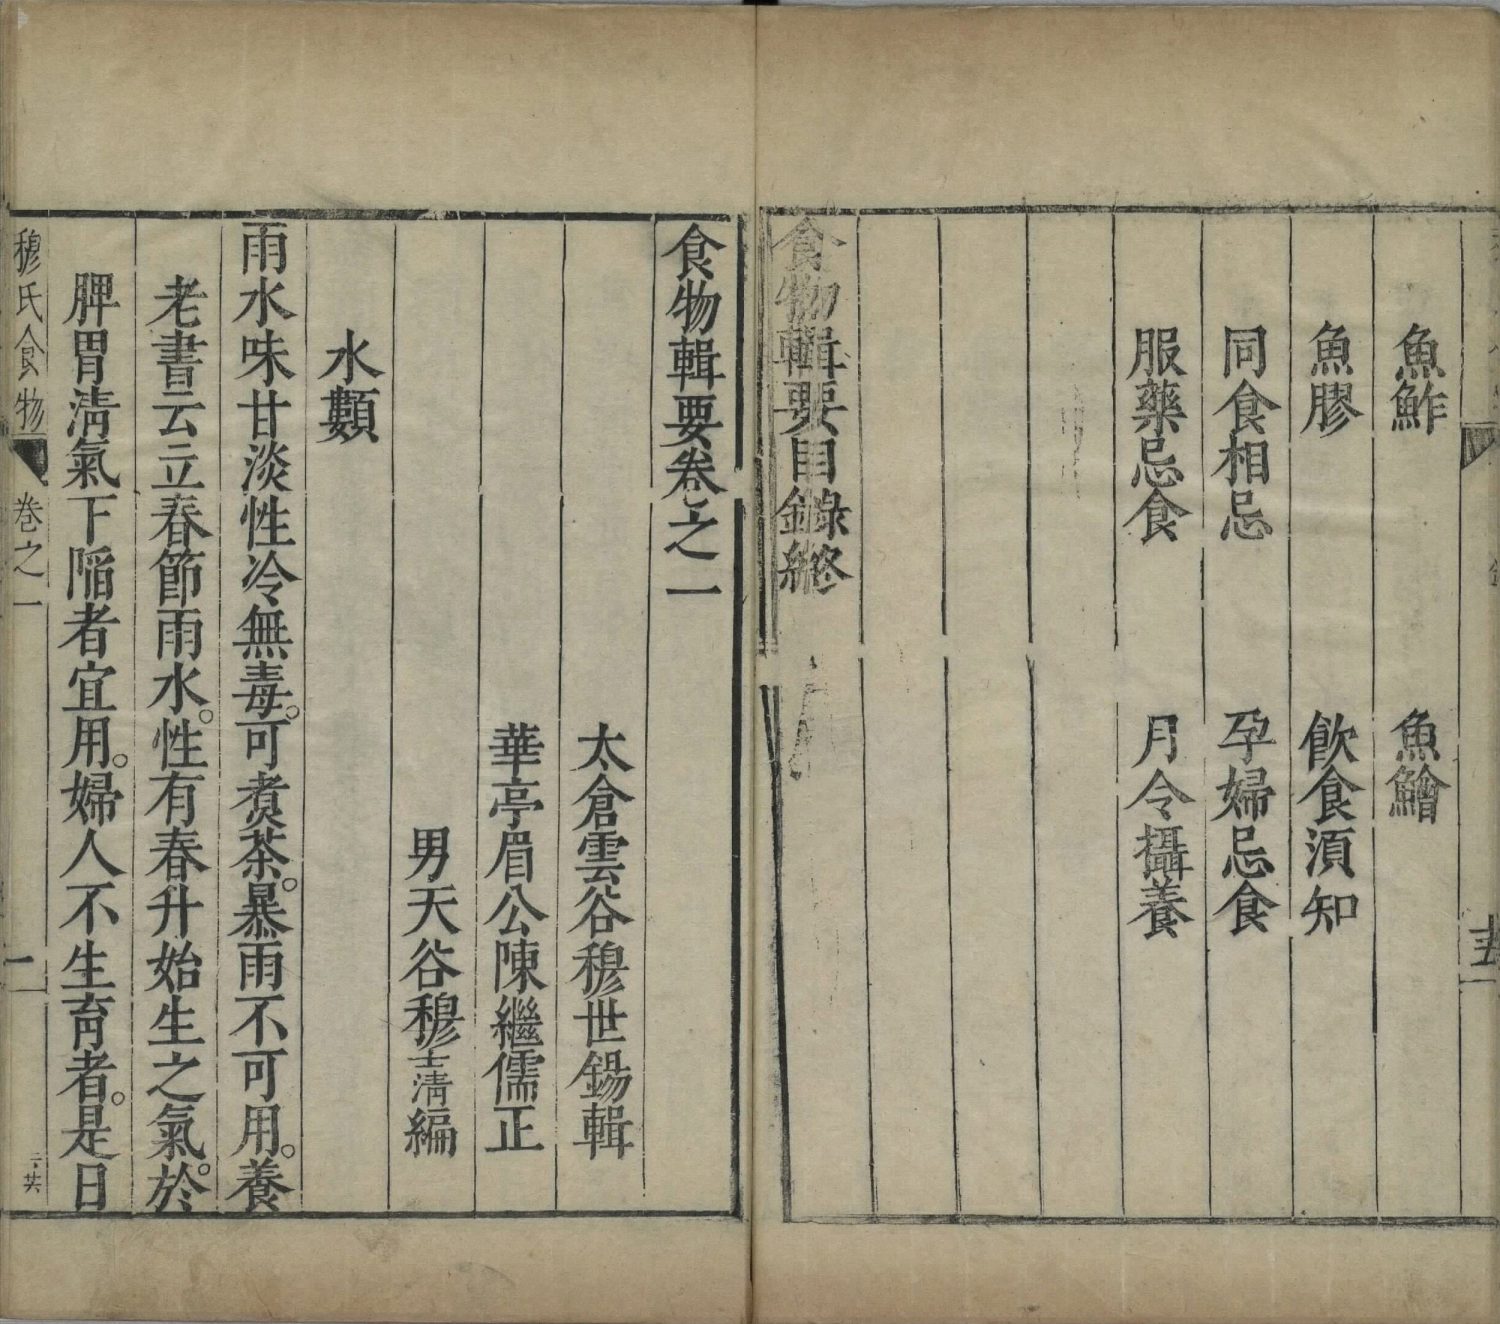 魚鮓　魚鱠
魚膠　飲食須知
同食相忌　孕婦忌食
服藥忌食　月令攝養
食物輯要目錄終
食物輯要卷之一
太倉雲谷穆世錫輯
華亭眉公陳繼儒正
男天谷穆士清編
水類
雨水味甘淡性冷無毒。可煑茶。暴雨不可用。養
老書云立春節雨水。性有春升始生之氣。於
脾胃清氣下陷者宜用。婦人不生育者。是日
穆氏食物　卷之一　一